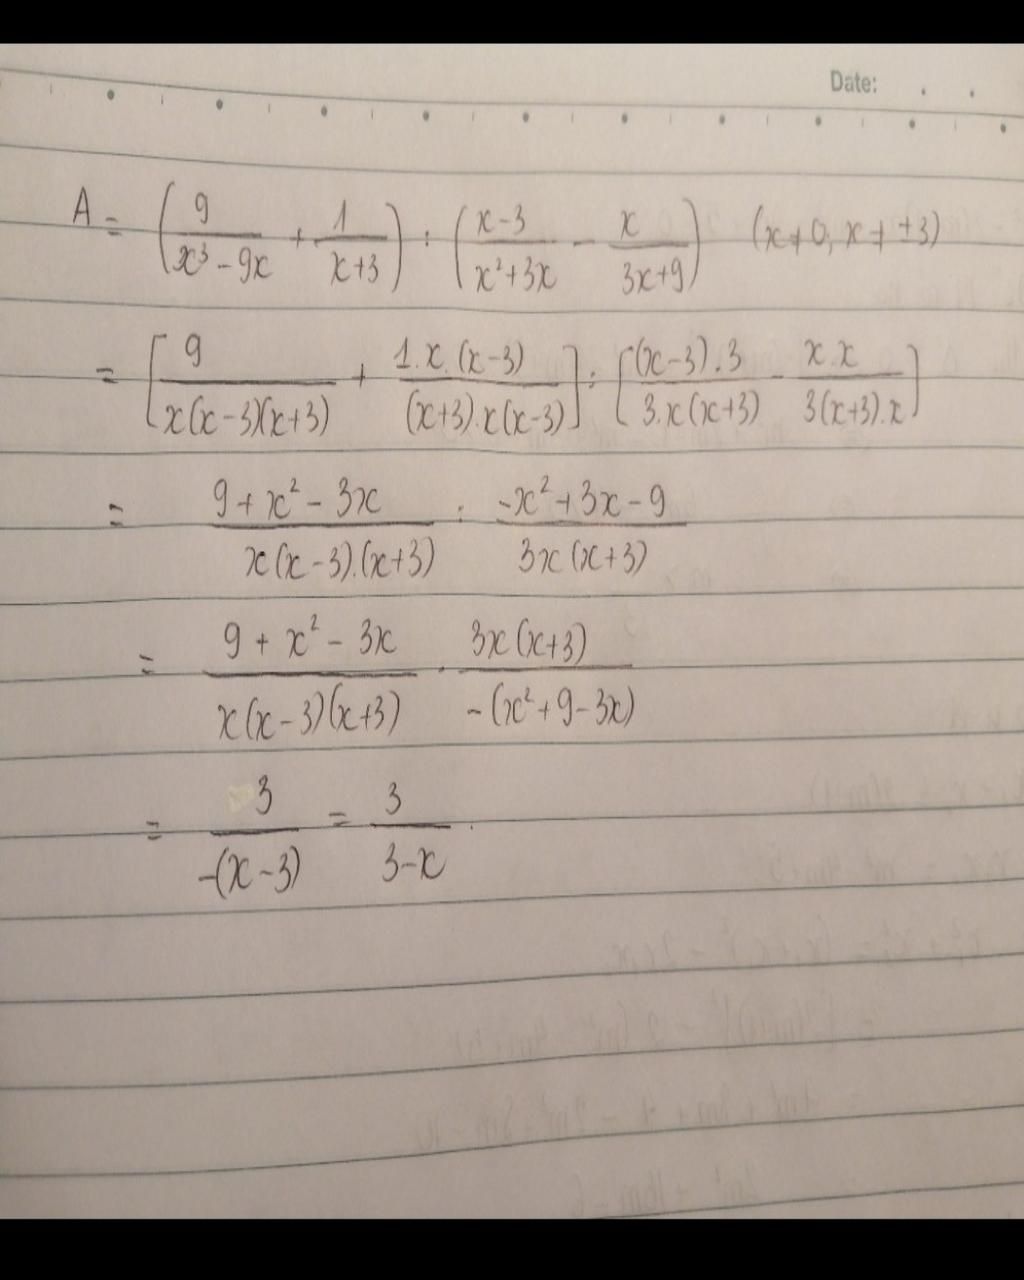 Date: . .
A = (9/(x³ - 9x) + 1/(x+3)) : ((x-3)/(x²+3x) - x/(3x+9)) (x≠0, x≠±3)
= [9/(x(x-3)(x+3)) + (1.x.(x-3))/((x+3).x(x-3))] : [((x-3).3)/(3.x(x+3)) - (x.x)/(3(x+3).x)]
= (9+x²-3x)/(x(x-3).(x+3)) : (-x²+3x-9)/(3x(x+3))
= (9+x²-3x)/(x(x-3)(x+3)) . (3x(x+3))/(-(x²+9-3x))
= 3/(-(x-3)) = 3/(3-x) .